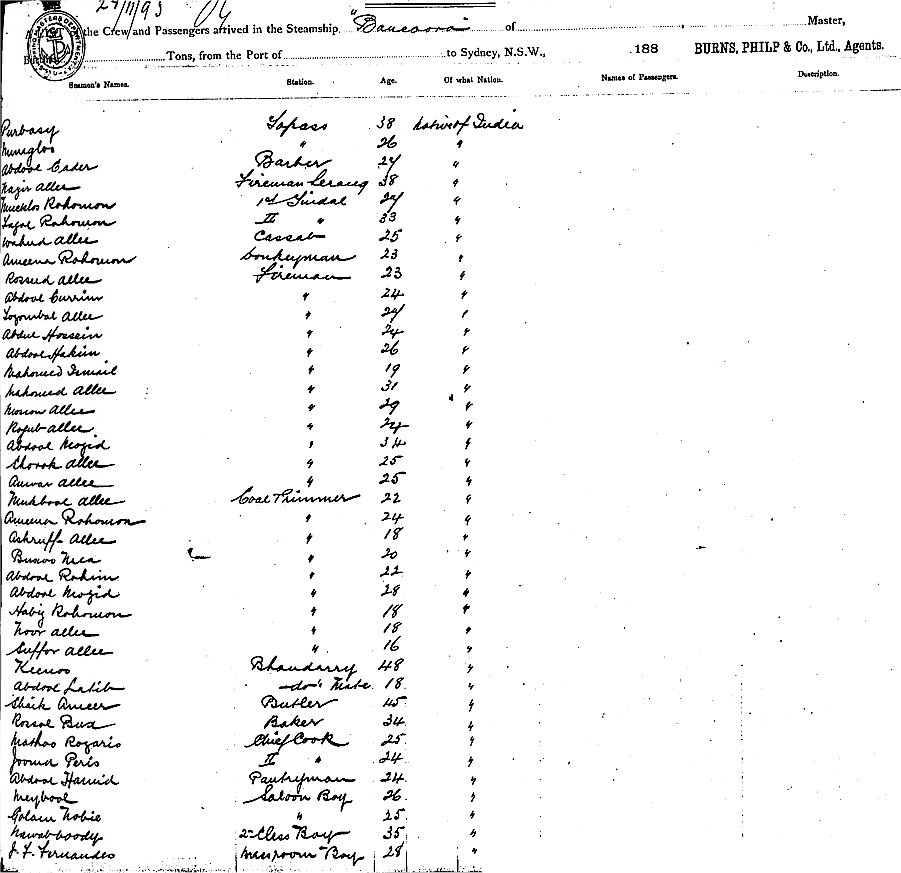 24/11/93
the Crew and Passengers arrived in the Steamship, "Bancoora" of , Master,
Tons, from the Port of to Sydney, N.S.W., 188 BURNS, PHILP & Co., Ltd., Agents.
Seamen's Names. Station. Age. Of what Nation. Names of Passengers. Description.
Purbasy Topass 38 Native of India
" 26 "
Abdool Cader Barber 24 "
Nazir Allee Fireman Serang 38 "
Mucklos Rohomon 1st Tindal 29 "
Rohomon II " 33 "
Wahed Allee Cassab 25 "
Ameena Rohomon Donkeyman 23 "
Rossed Allee Fireman 23 "
Abdool Currim " 24 "
Allee " 29 "
Abdul Hossein " 24 "
Abdool Hakim " 26 "
Mahomed Ismail " 19 "
Mahomed Allee " 31 "
Allee " 29 "
Rojub Allee " 24 "
Abdool Mozid " 34 "
Allee " 25 "
Anwar Allee " 25 "
Mukbool Allee Coal Trimmer 22 "
Ameena Rohomon " 24 "
Ashruff Allee " 18 "
Mea " 20 "
Abdool Rohim " 22 "
Abdool Mozid " 28 "
Habiz Rohomon " 18 "
Noor Allee " 18 "
Suffor Allee " 16 "
Keenoo Bhandarry 48 "
Abdool Latib -do's Mate 18 "
Shaik Ameer Butler 45 "
Rosool Bux Baker 34 "
Mathas Rozario Chief Cook 25 "
Jooma Peris II " 24 "
Abdool Hamid Pantryman 24 "
Meybool Saloon Boy 26 "
Golam Nobie " 25 "
Nawabboody 2nd Class Boy 35 "
J. F. Fernandes Messroom Boy 28 "